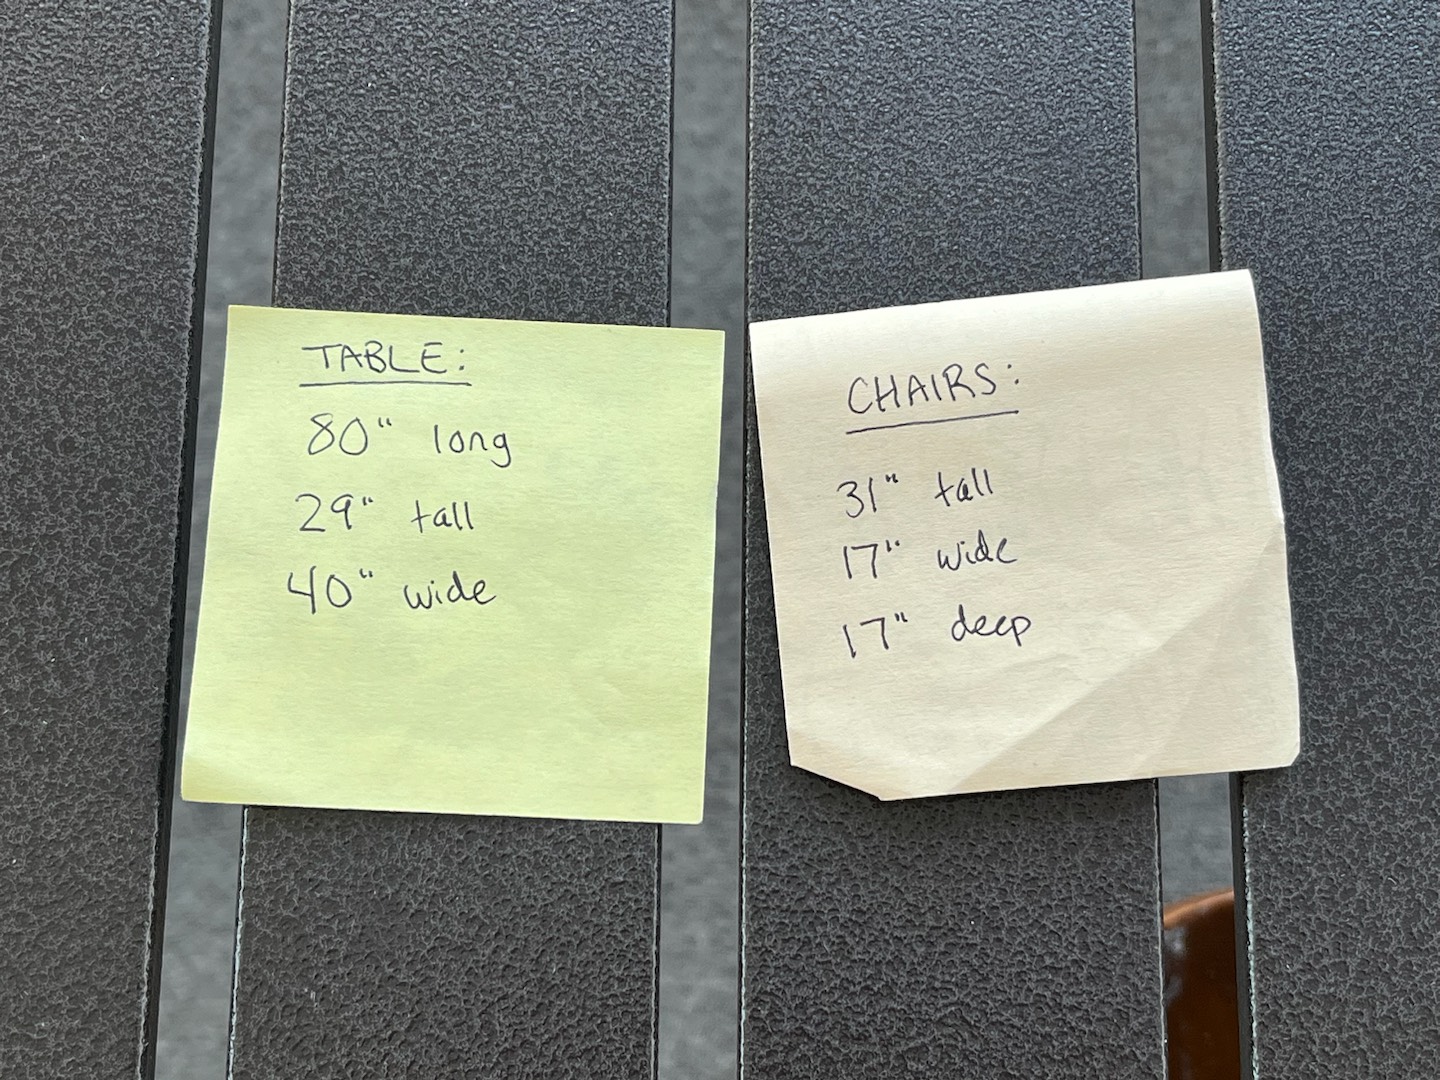 TABLE:
80" long
29" tall
40" wide
CHAIRS:
31" tall
17" wide
17" deep